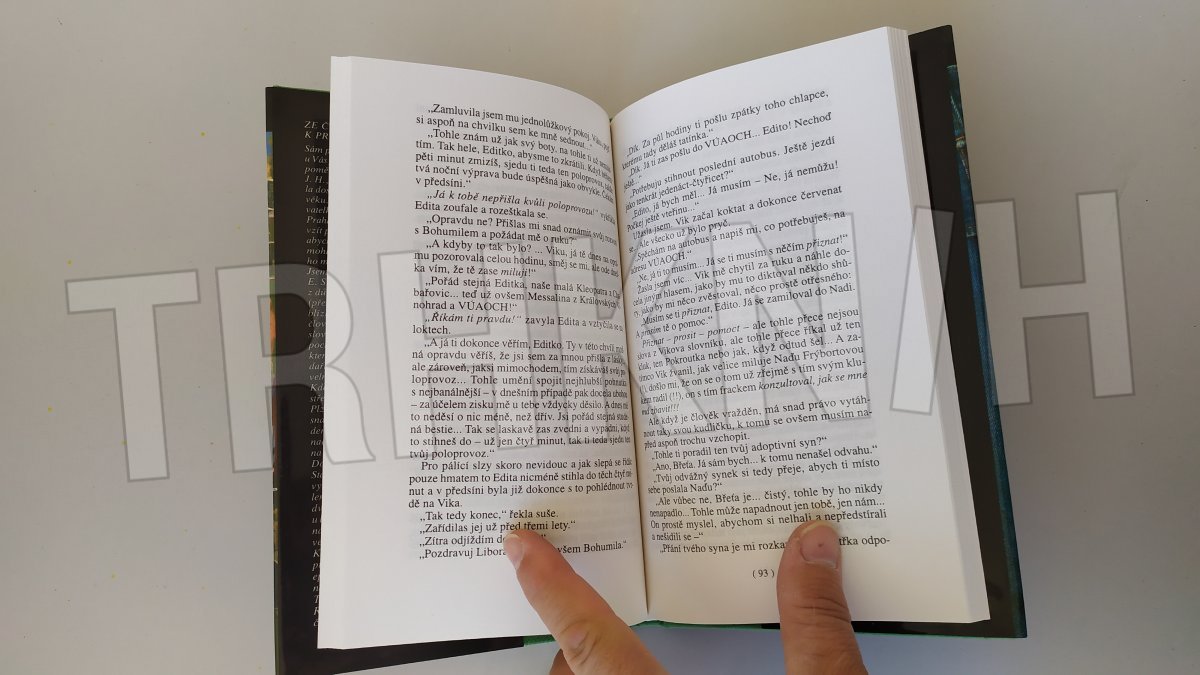 TRHKNIH
ZE Č
K PR
Sám p
u Vás
pomě
J. H.
la dos
věku.
vatelk
Praha
vzít p
abych
mohl
„Zamluvila jsem mu jednolůžkový pokoj. Viku,
si aspoň na chvilku sem ke mně sednout...“
„Tohle znám už jak svý boty, na tohle ti už
tím. Tak hele, Editko, abysme to zkrátili. Když
pěti minut zmizíš, sjedu ti teda ten poloprovoz,
tvá noční výprava bude úspěšná jako obvykle.
v předsíni.“
„Já k tobě nepřišla kvůli poloprovozu!“
Edita zoufale a rozeštkala se.
„Opravdu ne? Přišlas mi snad oznámit svůj
s Bohumilem a požádat mě o ruku?“
„A kdyby to tak bylo? ... Viku, já tě dnes na
mu pozorovala celou hodinu, směj se mi, ale ode
ka vím, že tě zase miluji!“
„Pořád stejná Editka, naše malá Kleopatra z
bařovic... teď už ovšem Messalina z Královských
nohrad a VÚAOCH!“
„Říkám ti pravdu!“ zavyla Edita a vztyčila se na
loktech.
„A já ti dokonce věřím, Editko. Ty v této chvíli
ná opravdu věříš, že jsi sem za mnou přišla z
ale zároveň, jaksi mimochodem, tím získáváš svůj
loprovoz... Tohle umění spojit nejhlubší
s nejbanálnější – v dnešním případě pak docela
– za účelem zisku mě u tebe vždycky děsilo. A dnes mě
to neděsí o nic méně, než dřív. Jsi pořád stejná
ná bestie... Tak se laskavě zas zvedni a vypadni, když
to stihneš do – už jen čtyř minut, tak ti teda sjedu ten
tvůj poloprovoz.“
Pro pálící slzy skoro nevidouc a jak slepá se řídíc
pouze hmatem to Edita nicméně stihla do těch čtyř mi-
nut a v předsíni byla již dokonce s to pohlédnout tvr-
dě na Vika.
„Tak tedy konec,“ řekla suše.
„Zařídilas jej už před třemi lety.“
„Zítra odjíždím
„Pozdravuj Libora všem Bohumila.“
„Dík. Za půl hodiny ti pošlu zpátky toho chlapce,
kterému tady děláš tatínka.“
„Dík. Já ti zas pošlu do VÚAOCH... Edito! Nechoď
ještě...“
„Potřebuju stihnout poslední autobus. Ještě jezdí
jako tenkrát jedenáct-čtyřicet?“
„Edito, já bych měl... Já musím – Ne, já nemůžu!
Počkej ještě vteřinu...“
Užasla jsem. Vik začal koktat a dokonce červenat
se... Ale všecko už bylo pryč.
„Spěchám na autobus a napiš mi, co potřebuješ, na
adresu VÚAOCH.“
„Ne, já ti to musím... Já se ti musím s něčím přiznat!“
Žasla jsem víc – Vik mě chytil za ruku a náhle do-
cela jiným hlasem, jako by mu to diktoval někdo shů-
ry, jako by mi něco zvěstoval, něco prostě otřesného:
„Musím se ti přiznat, Edito. Já se zamiloval do Nadi.
A prosím tě o pomoc.“
Přiznat – prosit – pomoct – ale tohle přece nejsou
slova z Vikova slovníku, ale tohle přece říkal už ten
kluk, ten Pokroutka nebo jak, když odtud šel... A za-
tímco Vik žvanil, jak velice miluje Naďu Frýbortovou
(!), došlo mi, že on se o tom už zřejmě s tím svým klu-
kem radil (!!), on s tím frackem konzultoval, jak se mne
má zbavit!!!
Ale když je člověk vražděn, má snad právo vytáh-
nout taky svou kudličku, k tomu se ovšem musím na-
před aspoň trochu vzchopit.
„Tohle ti poradil ten tvůj adoptivní syn?“
„Ano, Břeťa. Já sám bych... k tomu nenašel odvahu.“
„Tvůj odvážný synek si tedy přeje, abych ti místo
sebe poslala Naďu?“
„Ale vůbec ne. Břeťa je... čistý, tohle by ho nikdy
nenapadlo... Tohle může napadnout jen tobě, jen nám...
On prostě myslel, abychom si nelhali a nepředstírali
a nešidili se –“
„Přání tvého syna je mi rozka třka odpo-
( 93 )